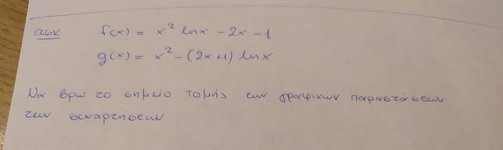 ασκ f(x) = x² lnx - 2x - 1
g(x) = x² - (2x+1) lnx
Να βρω το σημείο τομής των γραφικων παραστάσεων
των συναρτήσεων.